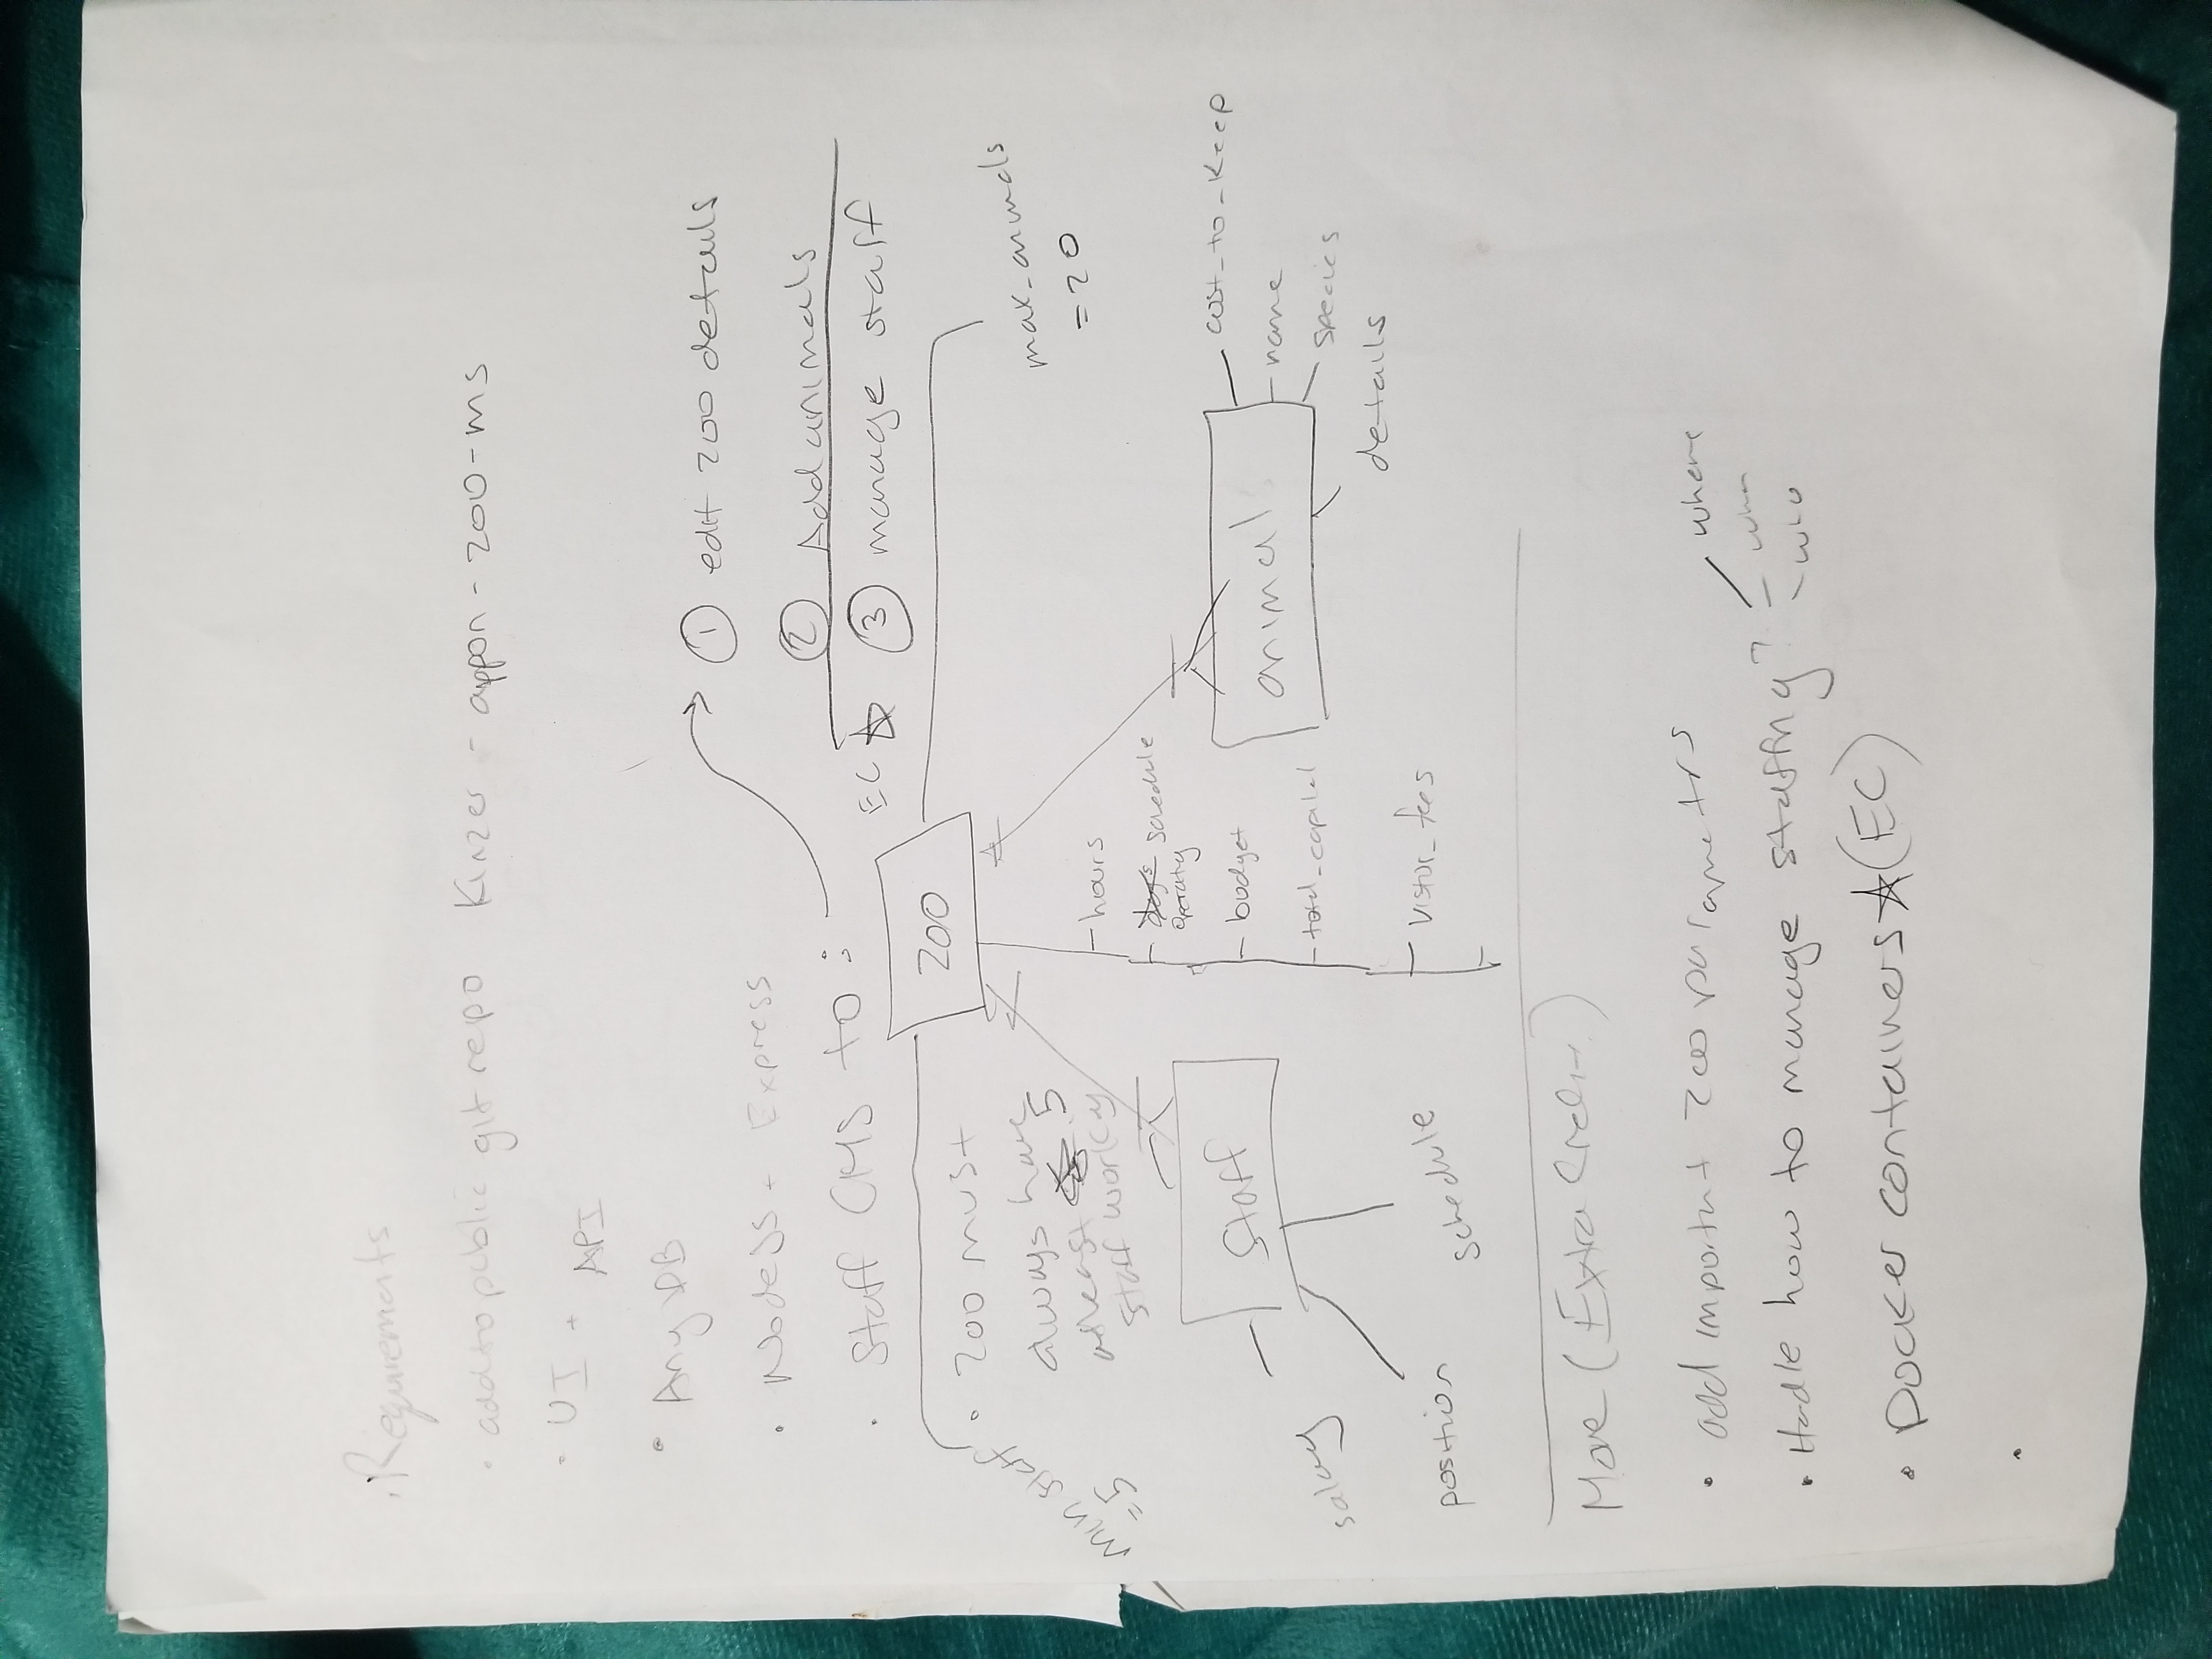 Requirements
• add to public git repo Kinzer - appon - zoo - ms
• UI + API
• Any DB
• NodeJS + Express
• Staff CMS to :
① edit zoo details
② Add animals
EC ☆ ③ manage staff
zoo
• zoo must
always have
atleast 5
staff
min staff
=5
max_animals
=20
hours
schedule
operatg
budget
total_capital
vistor_fees
Staff
salary
position
schedule
animal
cost_to_keep
name
species
details
More (Extra Credit)
• add important zoo parametrs
• Hadle how to manage staffing?
where
when
who
• Docker containers ☆ (EC)